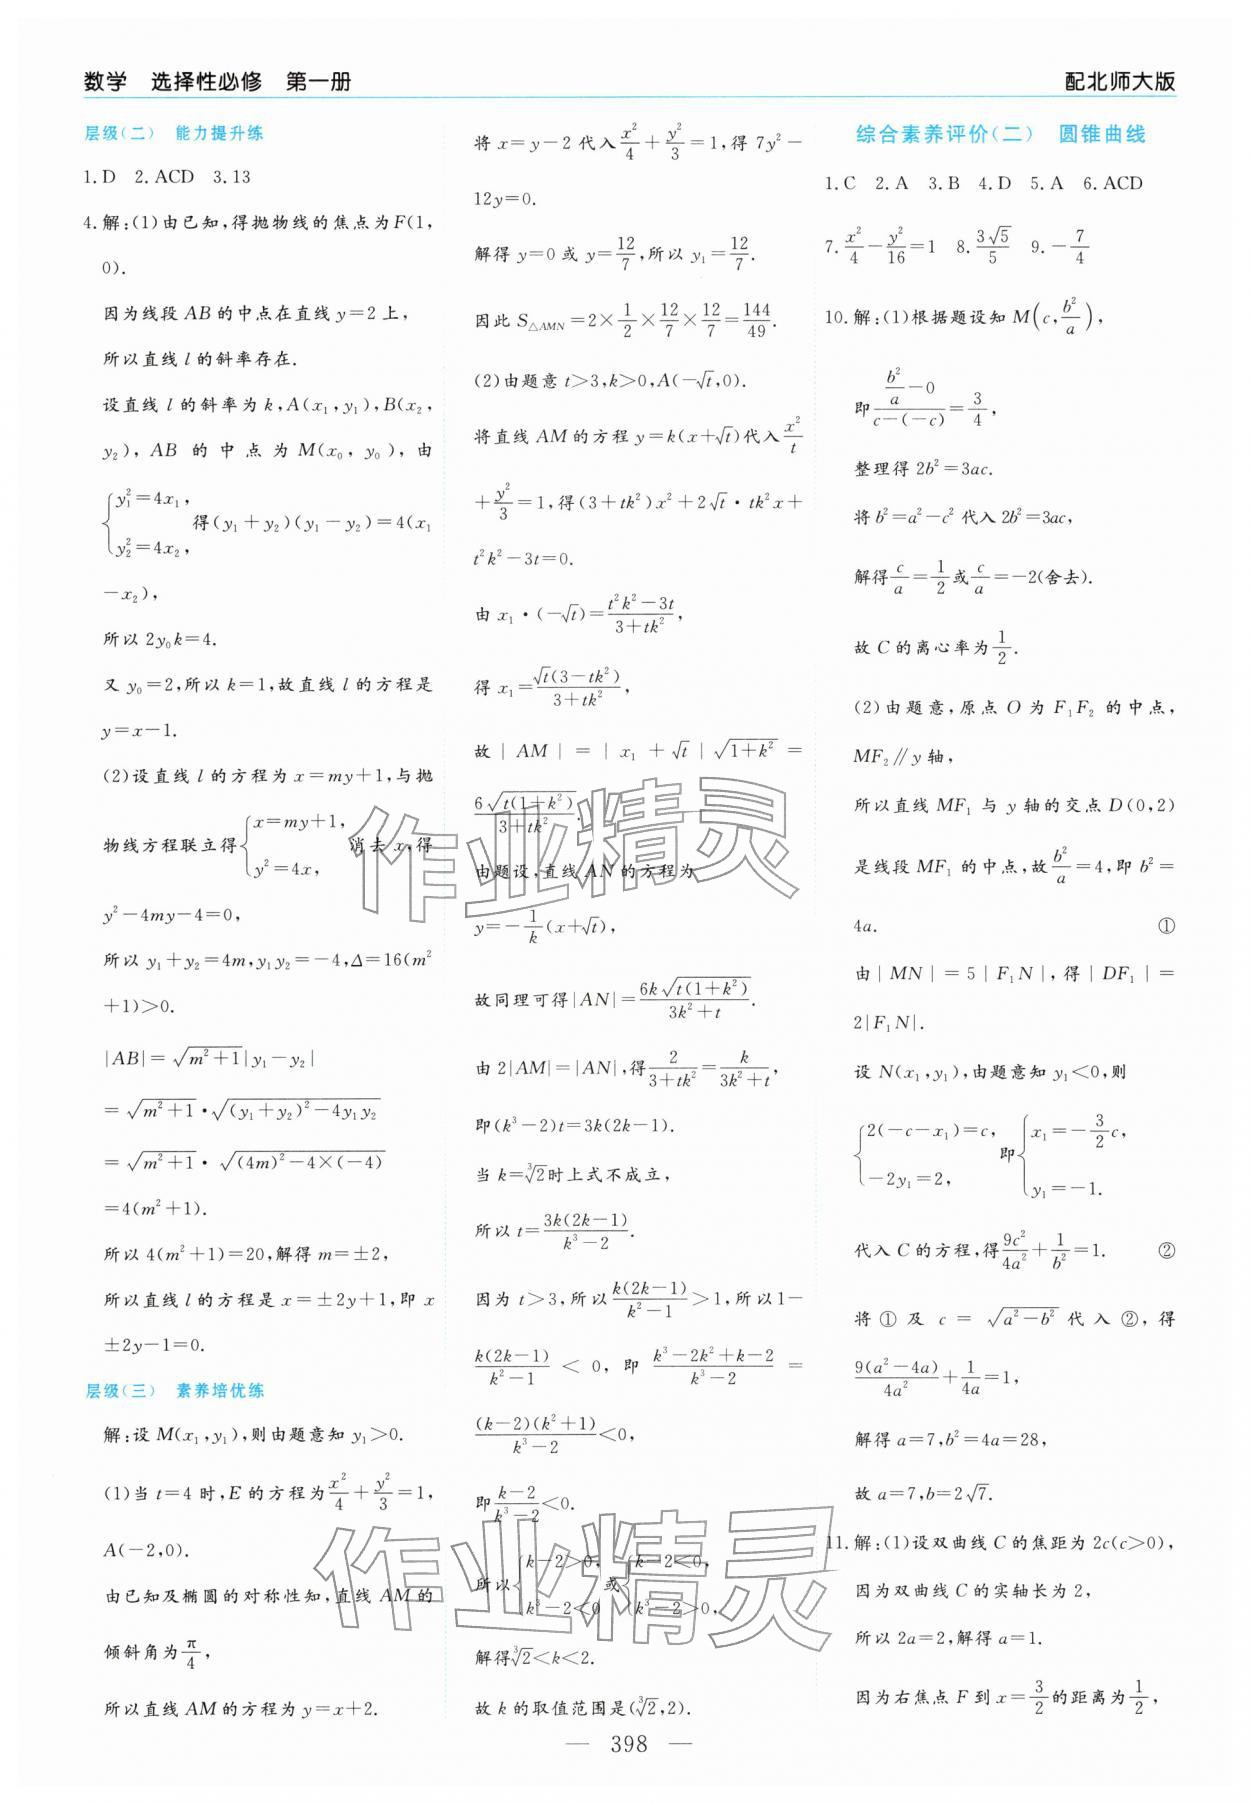 数学　选择性必修　第一册
配北师大版
层级(二)　能力提升练
1.D　2.ACD　3.13
4.解:(1)由已知,得抛物线的焦点为F(1,
0).
因为线段AB的中点在直线y=2上,
所以直线l的斜率存在.
设直线l的斜率为k,A(x₁,y₁),B(x₂,
y₂),AB的中点为M(x₀,y₀),由
{y₁²=4x₁, y₂²=4x₂, 得(y₁+y₂)(y₁-y₂)=4(x₁
-x₂),
所以2y₀k=4.
又y₀=2,所以k=1,故直线l的方程是
y=x-1.
(2)设直线l的方程为x=my+1,与抛
物线方程联立得{x=my+1, y²=4x, 消去x,得
y²-4my-4=0,
所以y₁+y₂=4m,y₁y₂=-4,Δ=16(m²
+1)>0.
|AB|=√(m²+1)|y₁-y₂|
=√(m²+1)·√((y₁+y₂)²-4y₁y₂)
=√(m²+1)·√((4m)²-4×(-4))
=4(m²+1).
所以4(m²+1)=20,解得m=±2,
所以直线l的方程是x=±2y+1,即x
±2y-1=0.
层级(三)　素养培优练
解:设M(x₁,y₁),则由题意知y₁>0.
(1)当t=4时,E的方程为x²/4+y²/3=1,
A(-2,0).
由已知及椭圆的对称性知,直线AM的
倾斜角为π/4,
所以直线AM的方程为y=x+2.
将x=y-2代入x²/4+y²/3=1,得7y²-
12y=0.
解得y=0或y=12/7,所以y₁=12/7.
因此S△AMN=2×1/2×12/7×12/7=144/49.
(2)由题意t>3,k>0,A(-√t,0).
将直线AM的方程y=k(x+√t)代入x²/t
+y²/3=1,得(3+tk²)x²+2√t·tk²x+
t²k²-3t=0.
由x₁·(-√t)=(t²k²-3t)/(3+tk²),
得x₁=√t(3-tk²)/(3+tk²),
故|AM|=|x₁+√t|√(1+k²)=
6√(t(1+k²))/(3+tk²).
由题设,直线AN的方程为
y=-1/k(x+√t),
故同理可得|AN|=6k√(t(1+k²))/(3k²+t).
由2|AM|=|AN|,得2/(3+tk²)=k/(3k²+t),
即(k³-2)t=3k(2k-1).
当k=∛2时上式不成立,
所以t=3k(2k-1)/(k³-2).
因为t>3,所以k(2k-1)/(k³-1)>1,所以1-
k(2k-1)/(k²-1)<0,即(k³-2k²+k-2)/(k³-2)=
(k-2)(k²+1)/(k³-2)<0,
即(k-2)/(k³-2)<0.
所以{k-2>0, k³-2<0 或{k-2<0, k³-2>0,
解得∛2<k<2.
故k的取值范围是(∛2,2).
综合素养评价(二)　圆锥曲线
1.C　2.A　3.B　4.D　5.A　6.ACD
7.x²/4-y²/16=1　8.3√5/5　9.-7/4
10.解:(1)根据题设知M(c,b²/a),
即(b²/a-0)/(c-(-c))=3/4,
整理得2b²=3ac.
将b²=a²-c²代入2b²=3ac,
解得c/a=1/2或c/a=-2(舍去).
故C的离心率为1/2.
(2)由题意,原点O为F₁F₂的中点,
MF₂∥y轴,
所以直线MF₁与y轴的交点D(0,2)
是线段MF₁的中点,故b²/a=4,即b²=
4a.　①
由|MN|=5|F₁N|,得|DF₁|=
2|F₁N|.
设N(x₁,y₁),由题意知y₁<0,则
{2(-c-x₁)=c, -2y₁=2, 即{x₁=-3/2c, y₁=-1.
代入C的方程,得9c²/4a²+1/b²=1.　②
将①及c=√(a²-b²)代入②,得
9(a²-4a)/4a²+1/4a=1,
解得a=7,b²=4a=28,
故a=7,b=2√7.
11.解:(1)设双曲线C的焦距为2c(c>0),
因为双曲线C的实轴长为2,
所以2a=2,解得a=1.
因为右焦点F到x=3/2的距离为1/2,
— 398 —
作业精灵
作业精灵